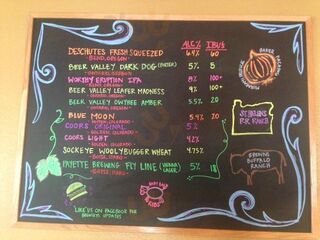 ALC% IBU's
DESCHUTES FRESH SQUEEZED 6.4% 60
- BEND, OREGON -
BEER VALLEY DARK DOG 5% 5
- ONTARIO, OREGON
WORTHY ERUPTION IPA 8% 100+
- BEND, OREGON -
BEER VALLEY LEAFER MADNESS 9% 100+
- ONTARIO, OREGON -
BEER VALLEY OWYHEE AMBER 5.5% 20
- ONTARIO, OREGON -
BLUE MOON 5.4% 20
- GOLDEN, COLORADO -
COORS ORIGINAL 5%
- GOLDEN, COLORADO -
COORS LIGHT 4.2%
- GOLDEN, COLORADO -
SOCKEYE WOOLYBUGGER WHEAT 4.75%
- BOISE, IDAHO -
PAYETTE BREWING FLY LINE (VIENNA LAGER) 5% 18
- BOISE, IDAHO -
BAKER
FARMS
RANCH
BROWNE
BUFFALO
RANCH
LIKE US ON FACEBOOK FOR
UPDATES